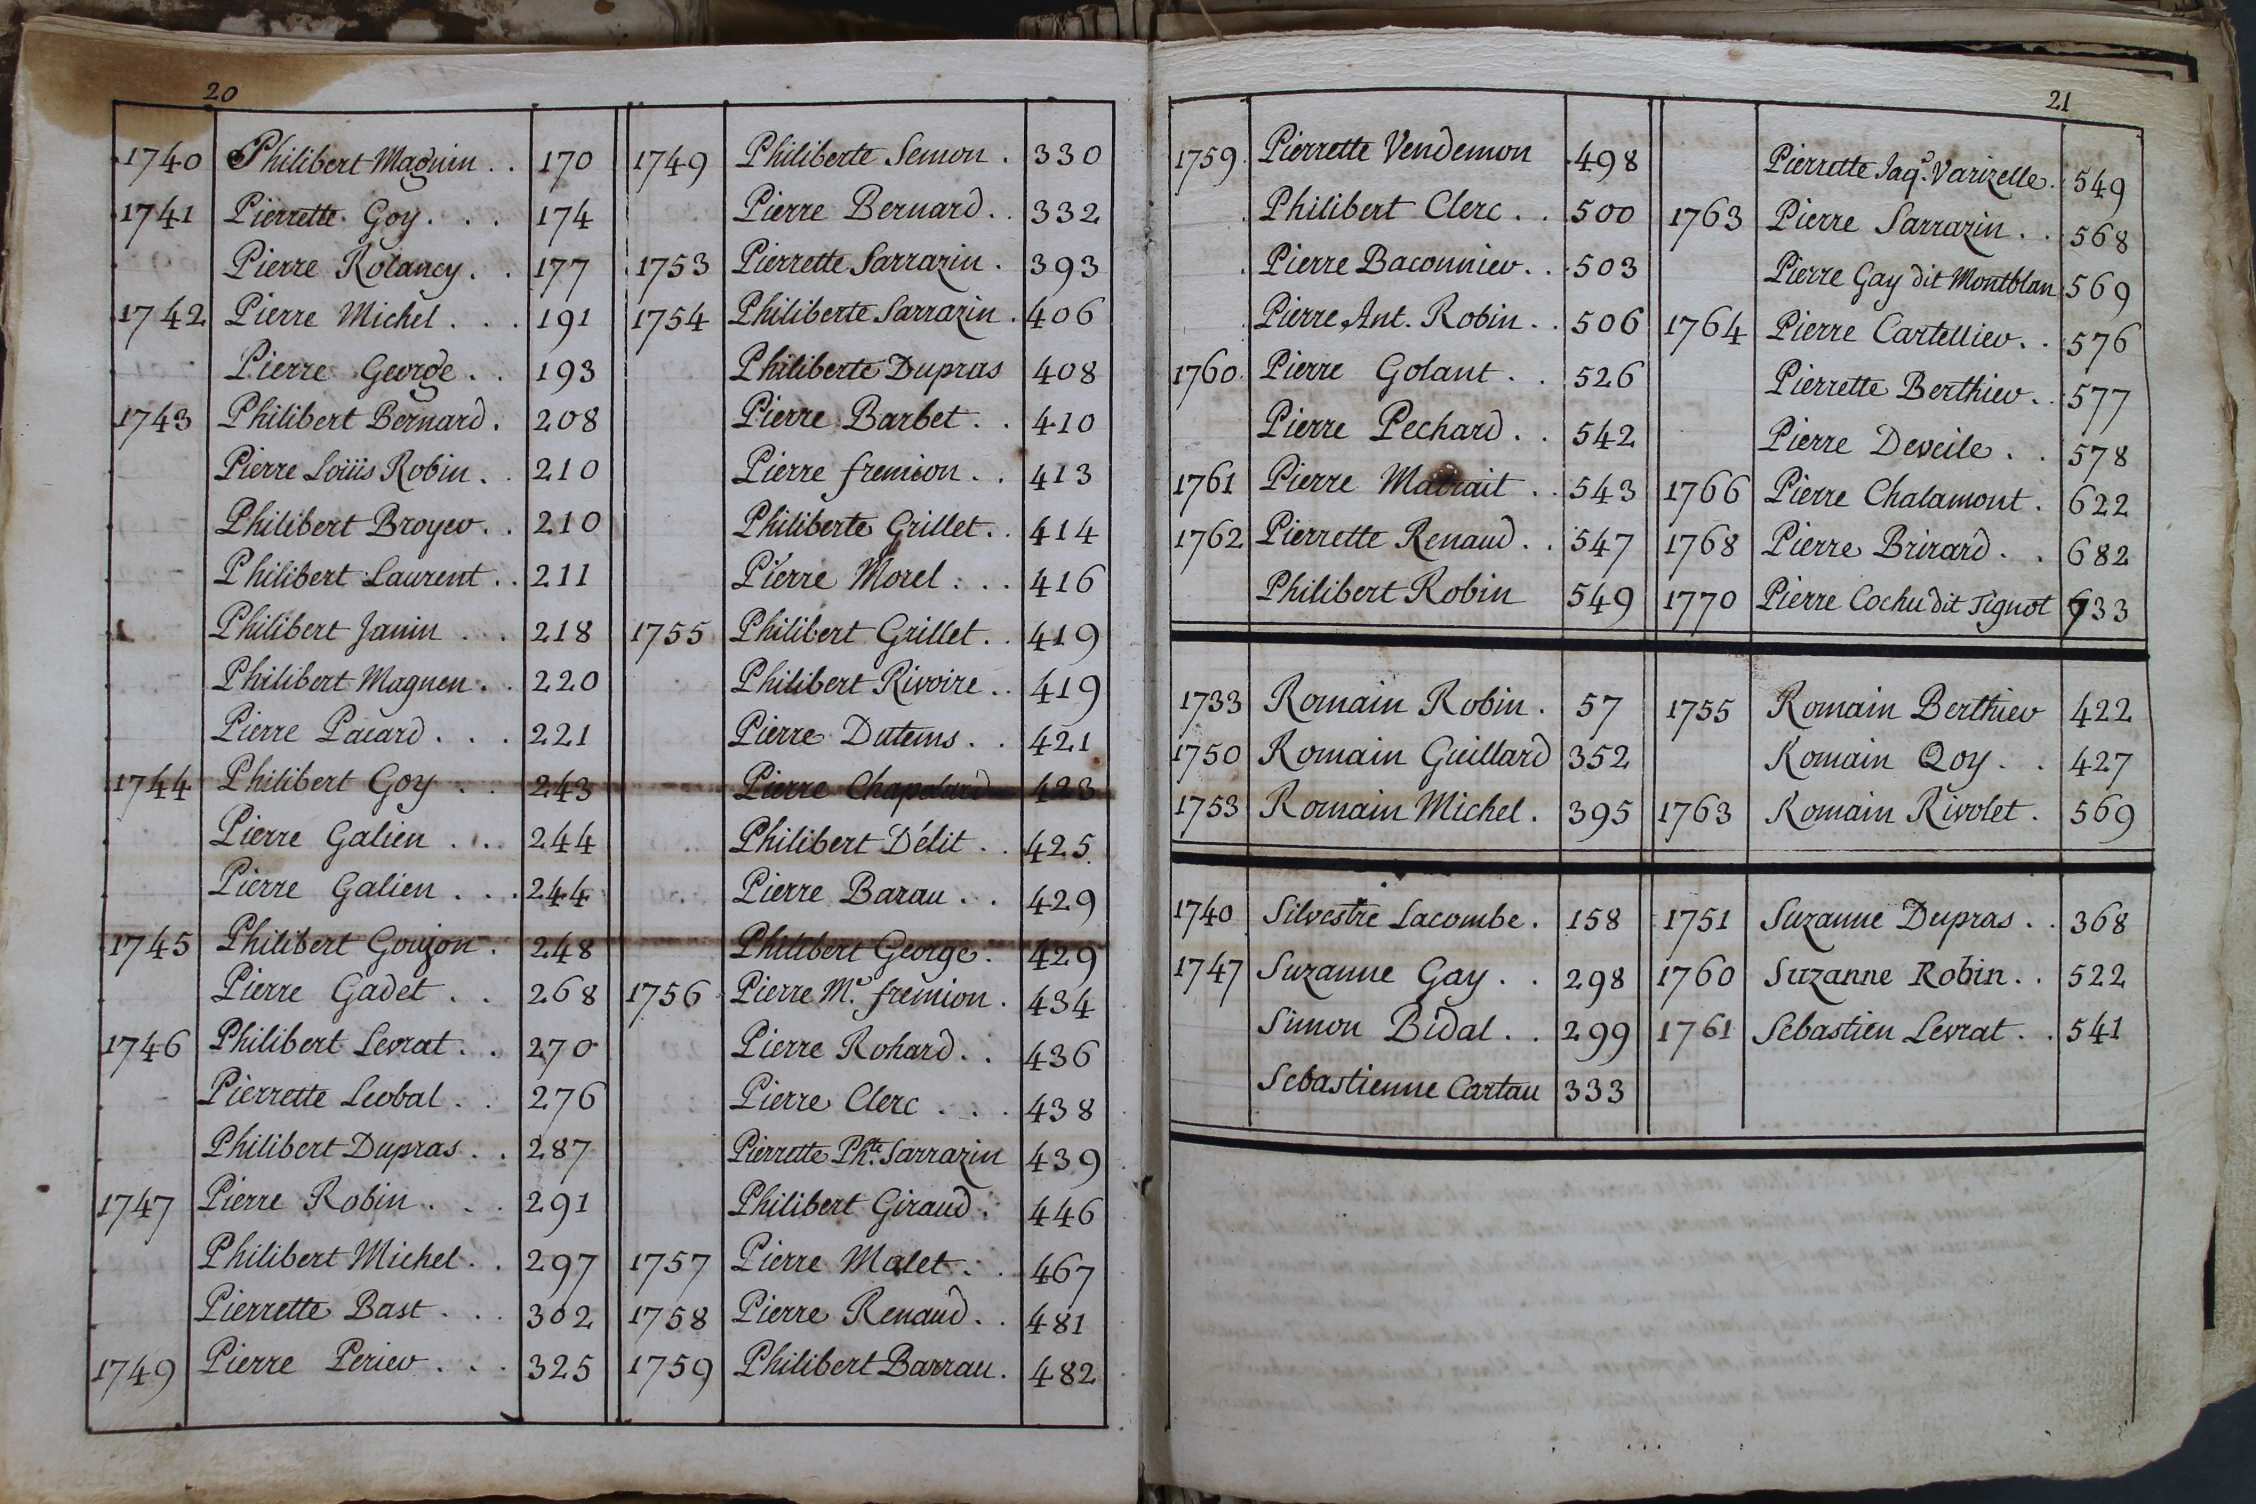 20
1740 Philibert Magnin . . 170
1741 Pierrette Goy . . . 174
Pierre Rolancy . . 177
1742 Pierre Michel . . . 191
Pierre George . . 193
1743 Philibert Bernard . 208
Pierre Loüis Robin . . 210
Philibert Broyer . . 210
Philibert Laurent . . 211
Philibert Janin . . . 218
Philibert Magnen . . 220
Pierre Pacard . . . 221
1744 Philibert Goy . . 243
Pierre Galien . . . 244
Pierre Galien . . . 244
1745 Philibert Goujon . 248
Pierre Gadet . . 268
1746 Philibert Levrat . . 270
Pierrette Leobal . . 276
Philibert Dupras . . 287
1747 Pierre Robin . . . 291
Philibert Michel . . 297
Pierrette Bast . . . 302
1749 Pierre Perier . . . 325
1749 Philiberte Semon . 330
Pierre Bernard . . 332
1753 Pierrette Sarrazin . 393
1754 Philiberte Sarrazin . 406
Philiberte Dupras 408
Pierre Barbet . . 410
Pierre fremion . . 413
Philiberte Grillet . . 414
Pierre Morel . . . 416
1755 Philibert Grillet . . 419
Philibert Rivoire . . 419
Pierre Dutems . . 421
Pierre Chapelard 423
Philibert Délit . . 425
Pierre Barau . . 429
Philibert George . 429
1756 Pierre M.e fremion . 434
Pierre Rohard . . 436
Pierre Clerc . . . 438
Pierrette Ph.te Sarrazin 439
Philibert Giraud . 446
1757 Pierre Malet . . 467
1758 Pierre Renaud . . 481
1759 Philibert Barrau . 482
21
1759 Pierrette Vendemon 498
Philibert Clerc . . 500
Pierre Baconnier . . 503
Pierre Ant. Robin . . 506
1760 Pierre Golant . . 526
Pierre Pechard . . 542
1761 Pierre . . 543
1762 Pierrette Renaud . . 547
Philibert Robin 549
Pierrette Jaq. Varizelle . 549
1763 Pierre Sarrazin . . 568
Pierre Gay dit Montblan 569
1764 Pierre Cartellier . . 576
Pierrette Berthier . . 577
Pierre Deveile . . 578
1766 Pierre Chalamont . 622
1768 Pierre Brirard . . 682
1770 Pierre Cochu dit Tignot 733
1733 Romain Robin . 57
1750 Romain Guillard 352
1753 Romain Michel . 395
1755 Romain Berthier 422
Romain Qoy . . 427
1763 Romain Rivolet . 569
1740 Silvestre Lacombe . 158
1747 Suzanne Gay . . 298
Simon Bidal . . 299
Sebastienne Cartau 333
1751 Suzanne Dupras . . 368
1760 Suzanne Robin . . 522
1761 Sebastien Levrat . . 541